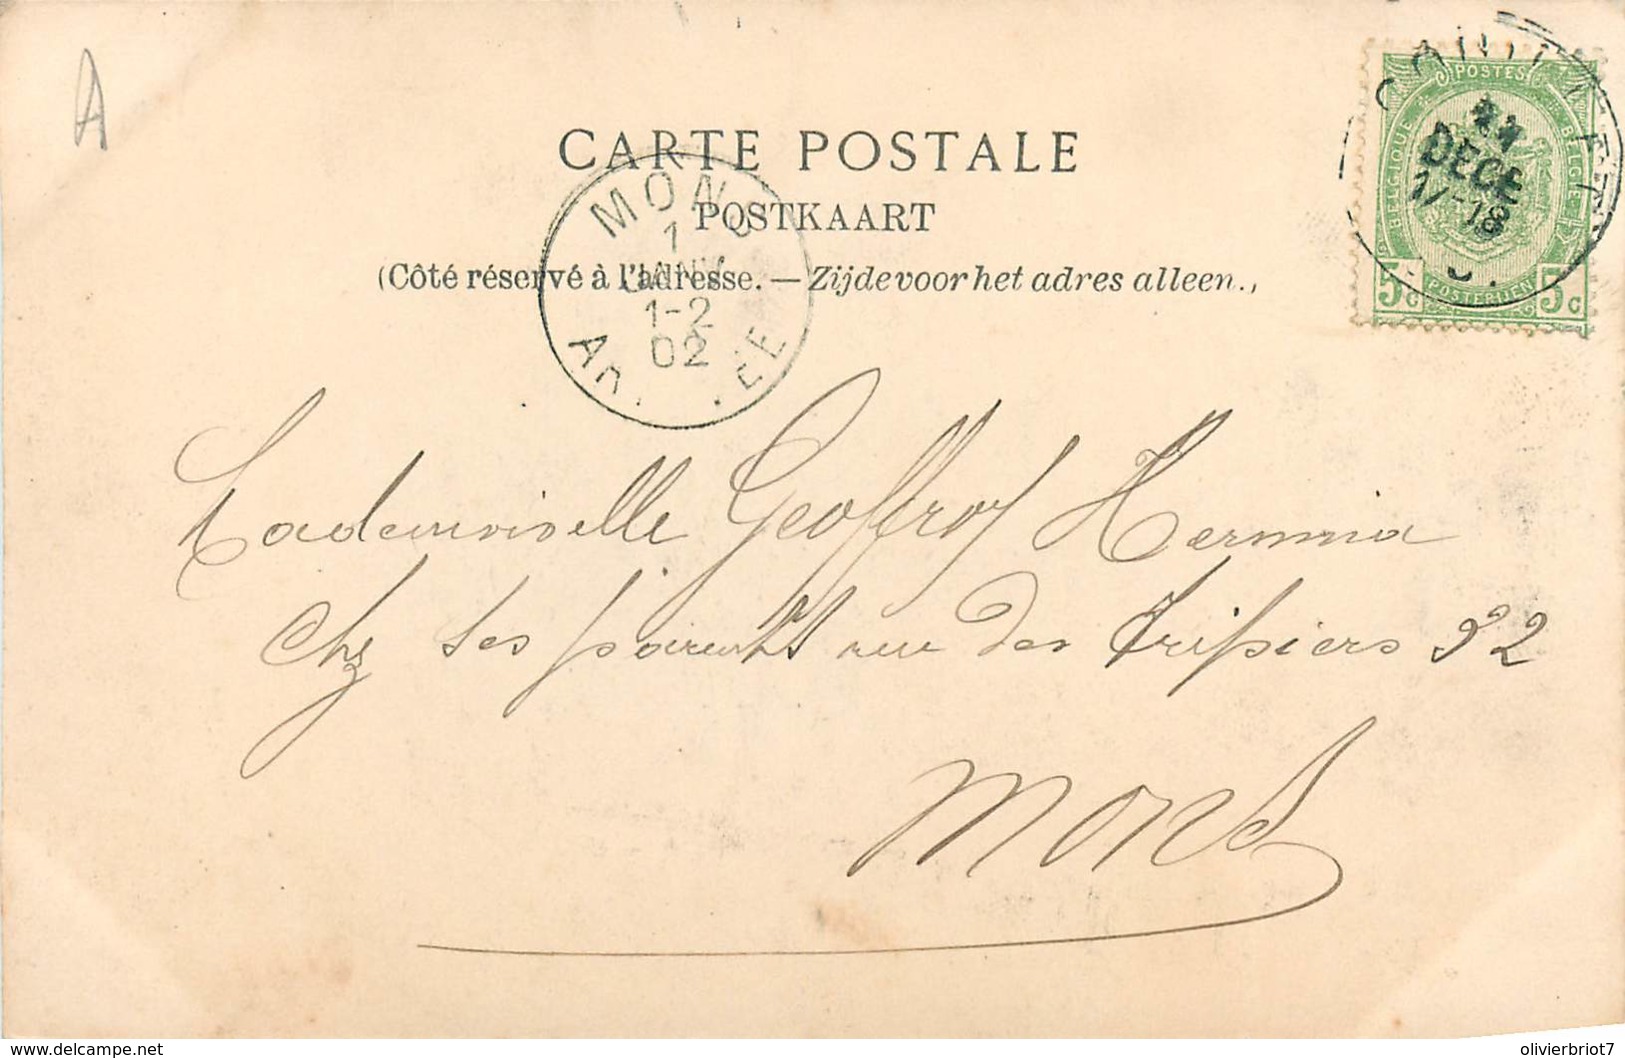 A
CARTE POSTALE
POSTKAART
(Côté réservé à l'adresse. — Zijde voor het adres alleen.)
POSTES
BELGIQUE BELGIE
5 c POSTERIJEN 5 c
DECE
MONS
1
JANV
1-2
02
Mademoiselle Geoffroy Hermina
chez ses parents rue des Fripiers 32
Mons
www.delcampe.net
olivierbriot7